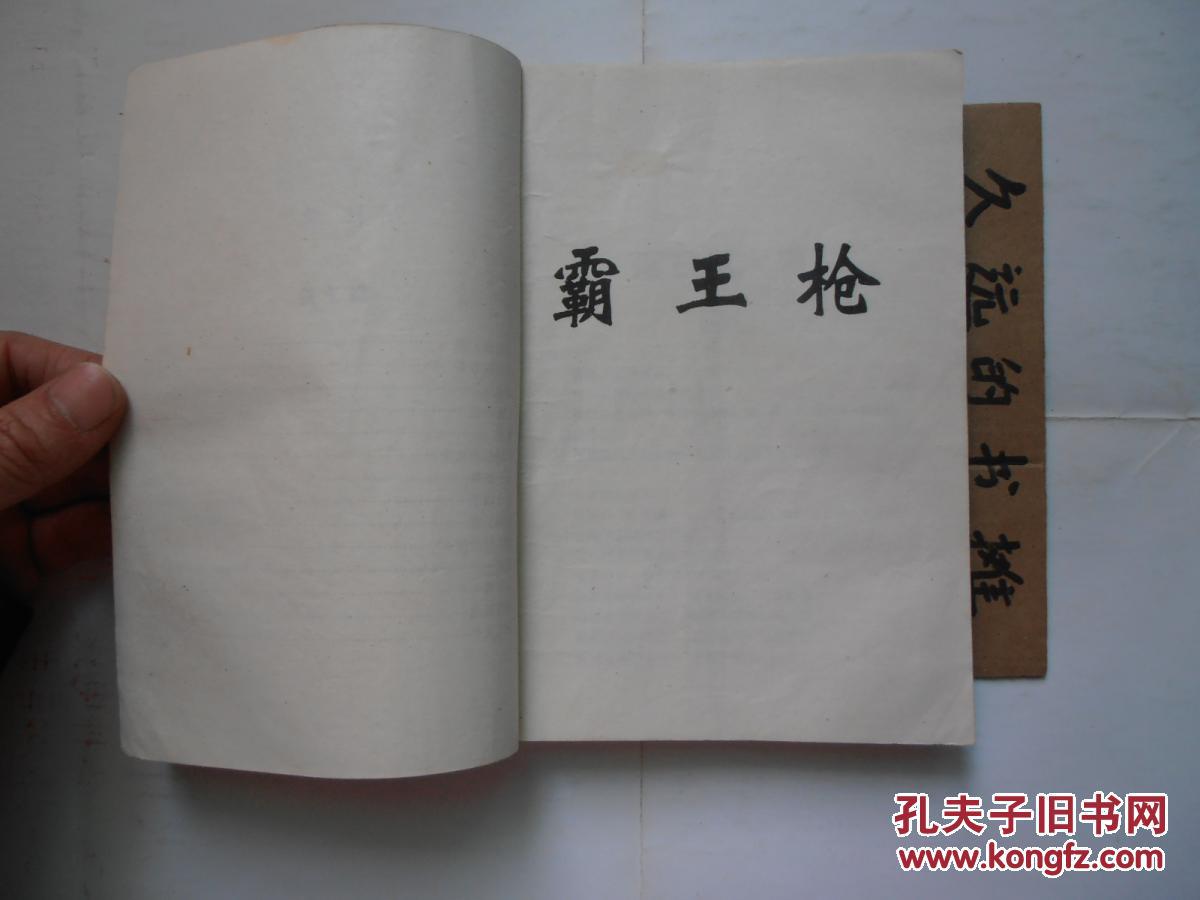 霸王枪
久远的书摊
孔夫子旧书网
www.kongfz.com